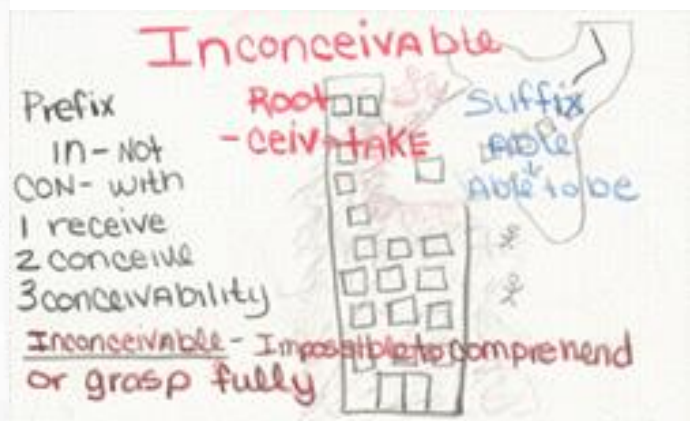 Inconceivable
Prefix
in - Not
CON - with
1 receive
2 conceive
3 conceivability
Root
- ceiv - tAKE
Suffix
Able
Able to be
Inconceivable - Impossible to comprehend
or grasp fully